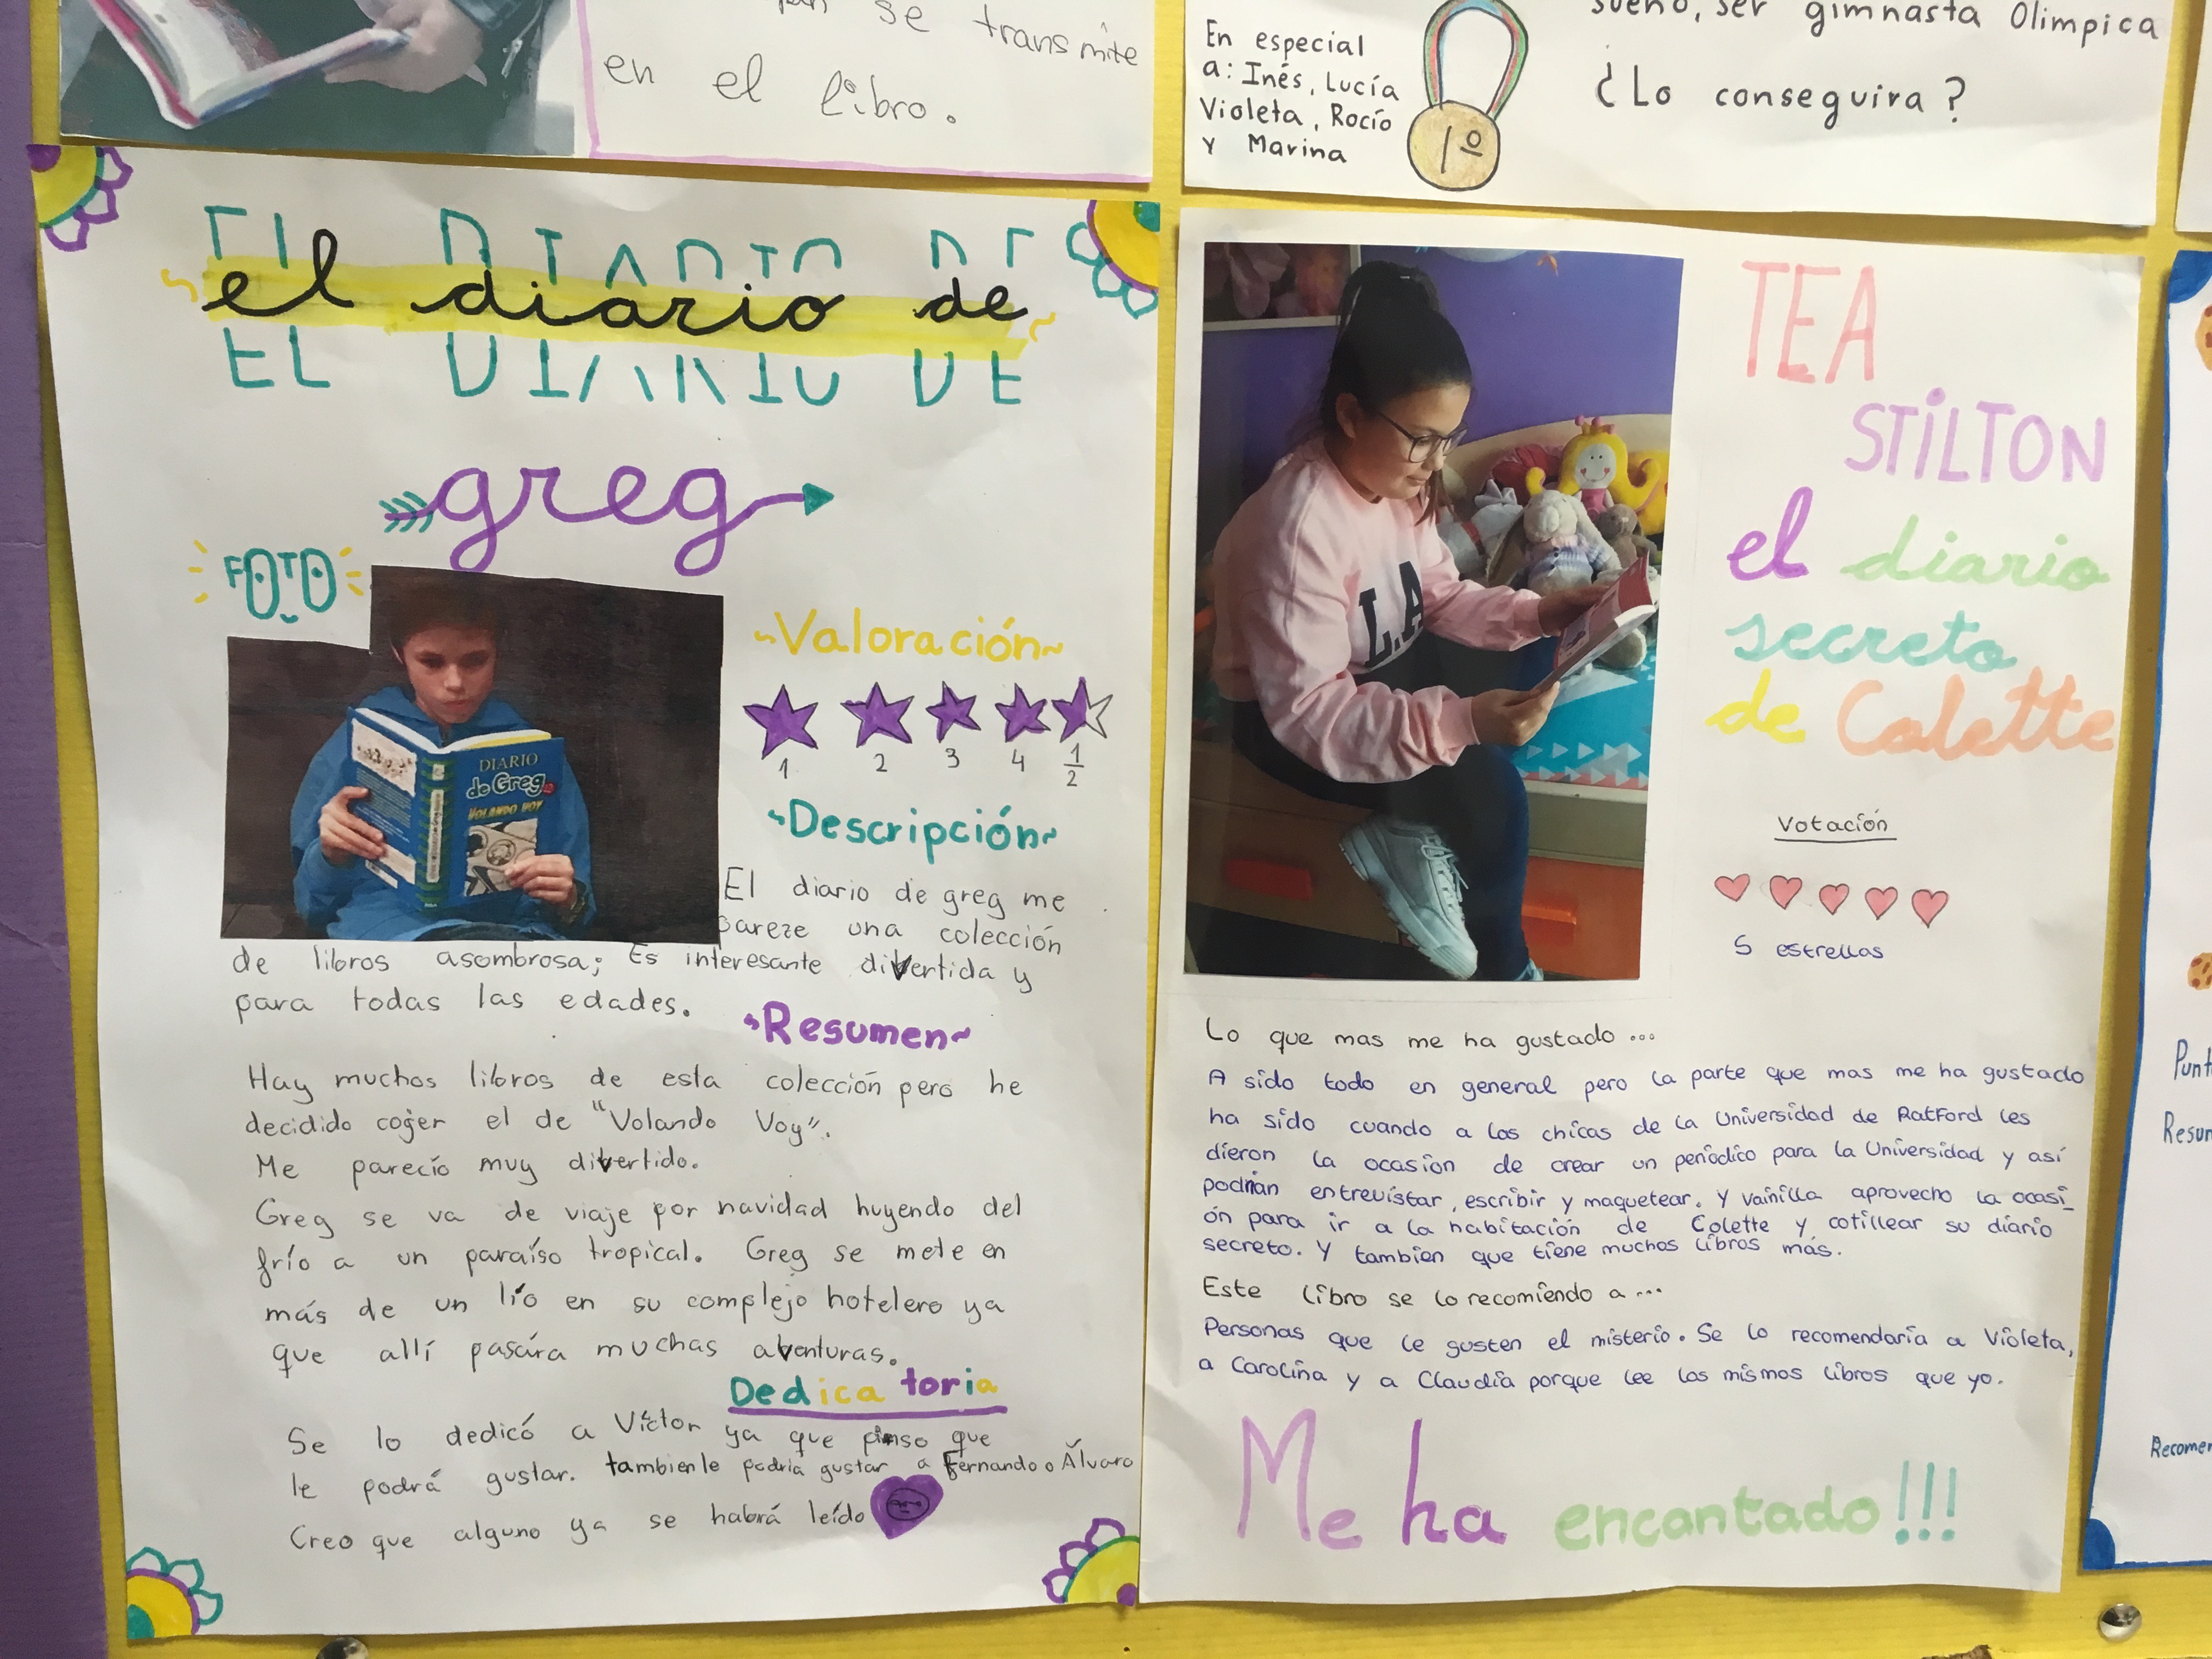 se transmite
en el libro.
En especial
a: Inés, Lucía
Violeta, Rocío
y Marina
1º
sueño, ser gimnasta Olimpica
¿Lo conseguira?
EL DIARIO DE
el diario de
EL DIARIO DE
greg
FOTO
DIARIO
de Greg
VOLANDO VOY
~Valoración~
1 2 3 4 1/2
~Descripción~
El diario de greg me
pareze una colección
de libros asombrosa; Es interesante divertida y
para todas las edades.
~Resumen~
Hay muchos libros de esta colección pero he
decidido coger el de "Volando Voy".
Me parecío muy divertido.
Greg se va de viaje por navidad huyendo del
frío a un paraíso tropical. Greg se mete en
más de un lío en su complejo hotelero ya
que allí pasára muchas aventuras.
Dedicatoria
Se lo dedicó a Víctor ya que pinso que
le podrá gustar. tambien le podria gustar a Fernando o Álvaro
Creo que alguno ya se habrá leído
TEA
STILTON
el diario
secreto
de Colette
L.A
Votación
5 estrellas
Lo que mas me ha gustado ...
A sido todo en general pero la parte que mas me ha gustado
ha sido cuando a las chicas de la Universidad de Ratford les
dieron la ocasion de crear un periodico para la Universidad y así
podrian entrevistar, escribir y maquetear. Y vainilla aprovecho la ocasi_
ón para ir a la habitación de Colette y cotillear su diario
secreto. Y tambien que tiene muchos libros más.
Este libro se lo recomiendo a ...
Personas que le gusten el misterio. Se lo recomendaria a Violeta,
a Carolina y a Claudia porque lee los mismos libros que yo.
Me ha encantado!!!
Punt
Resum
Recomen